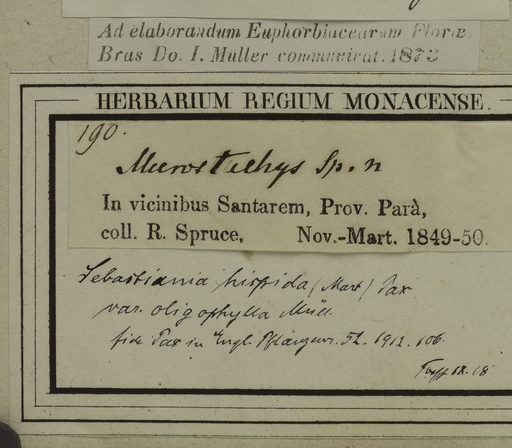 Ad elaborandum Euphorbiacearum Floræ
Bras Do. I. Müller communicat. 1873
HERBARIUM REGIUM MONACENSE.
190.
Microstachys Sp. n
In vicinibus Santarem, Prov. Parà,
coll. R. Spruce, Nov.-Mart. 1849-50.
Sebastiania hispida (Mart) Pax
var. oligophylla Müll.
fide Pax in Engl. Pflanzenr. 52. 1912. 106.
IX. 18